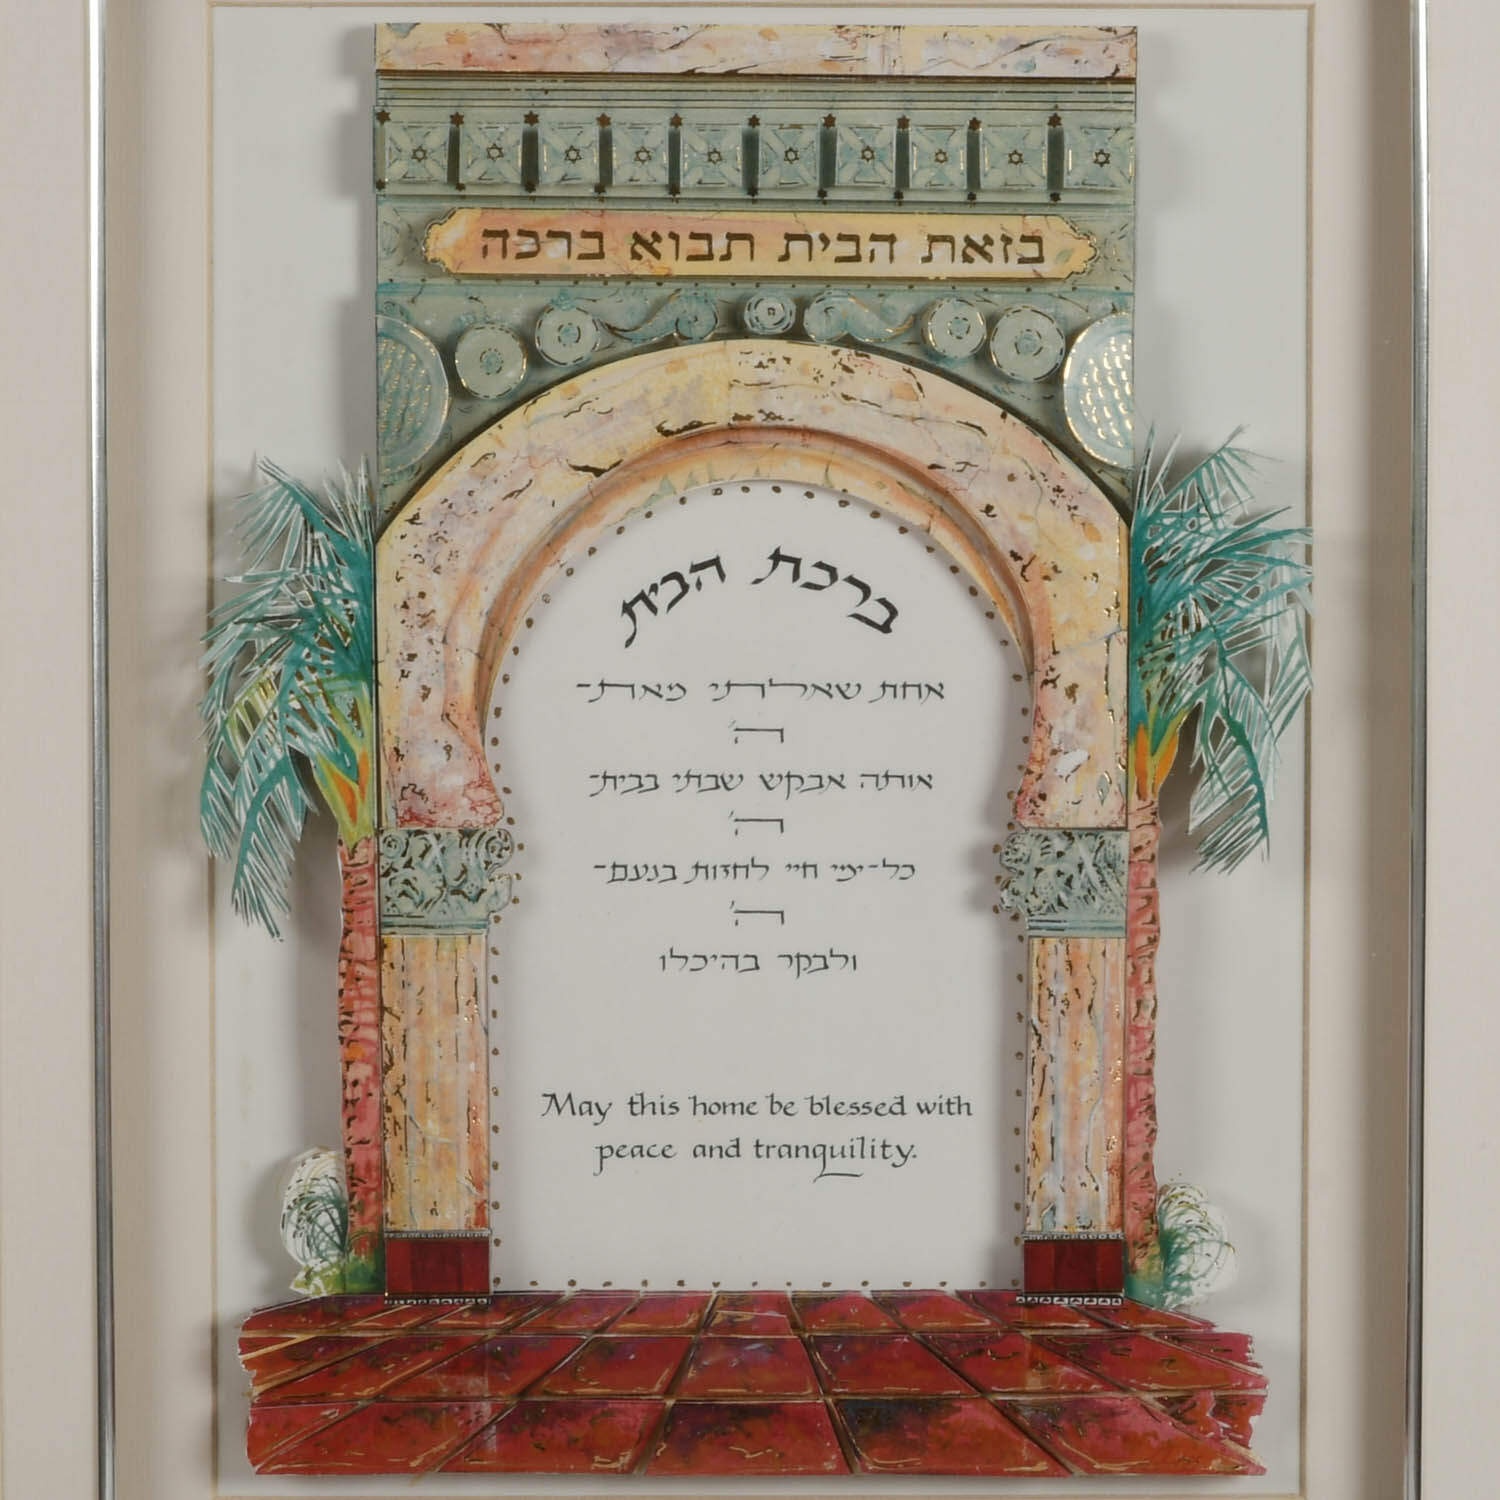 בזאת הבית תבוא ברכה
ברכת הבית
אחת שאלתי מאת-
ה'
אותה אבקש שבתי בבית-
ה'
כל-ימי חיי לחזות בנעם-
ה'
ולבקר בהיכלו
May this home be blessed with
peace and tranquility.